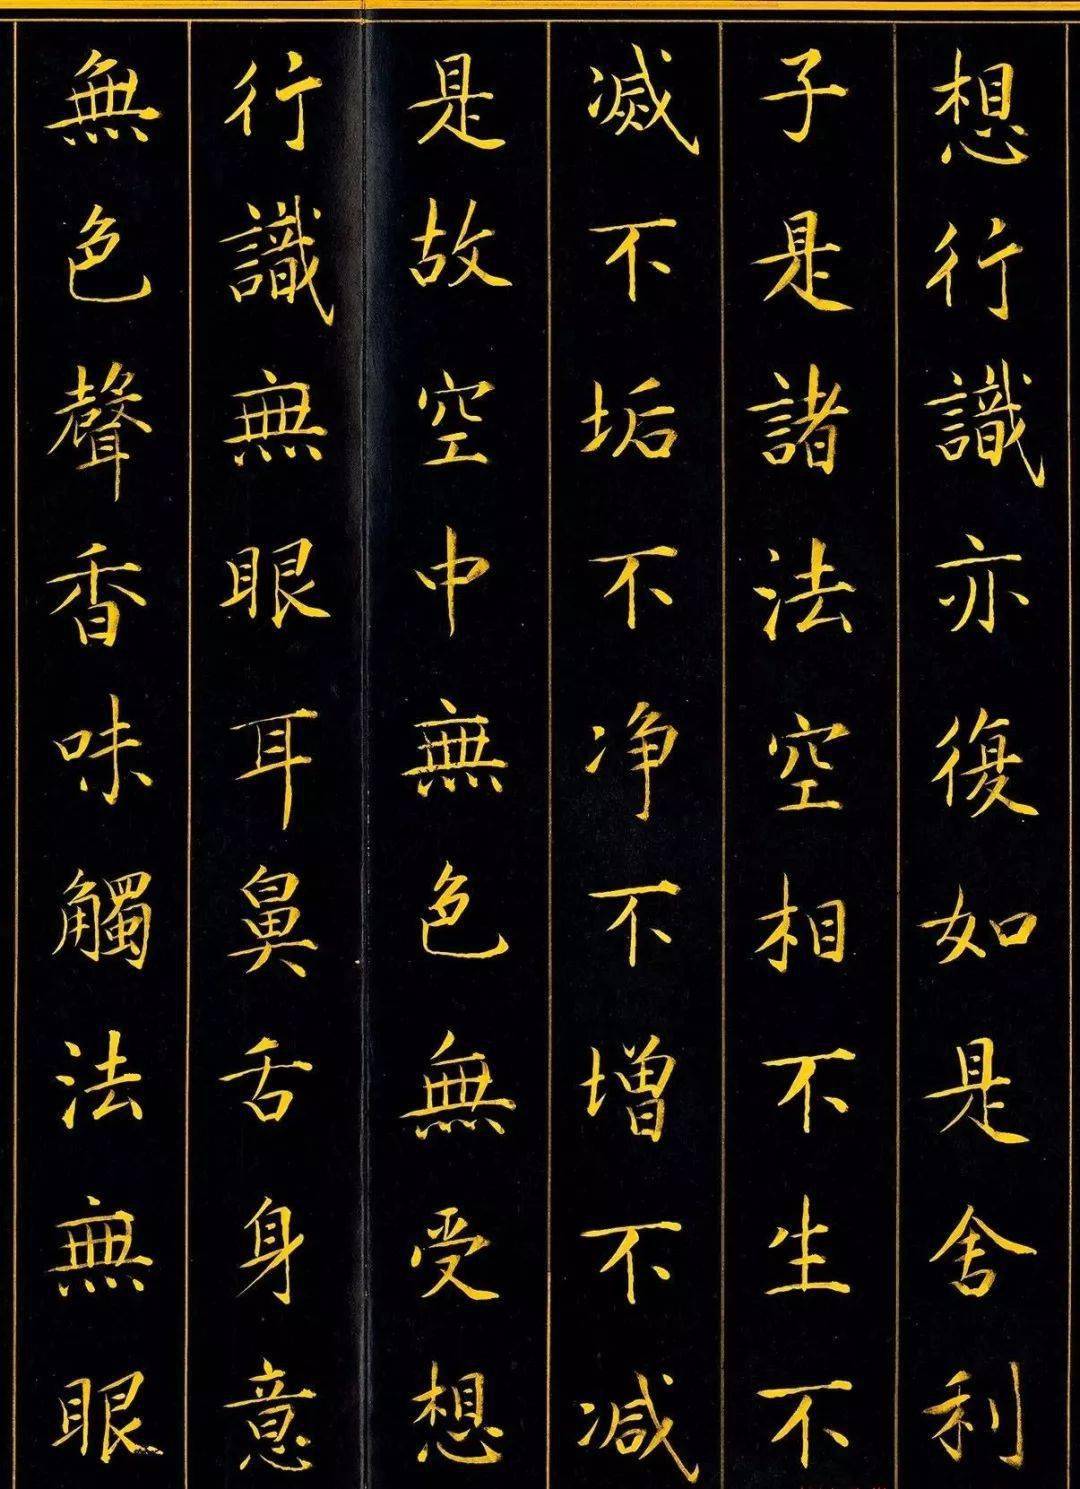 想行識亦復如是舍利
子是諸法空相不生不
滅不垢不净不增不减
是故空中無色無受想
行識無眼耳鼻舌身意
無色聲香味觸法無眼